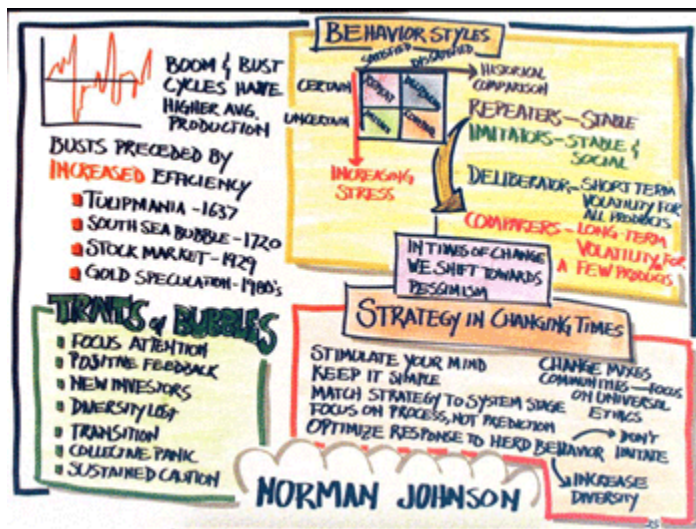 BOOM & BUST
CYCLES HAVE
HIGHER AVG.
PRODUCTION
BUSTS PRECEDED BY
INCREASED EFFICIENCY
TULIPMANIA - 1637
SOUTH SEA BUBBLE - 1720
STOCK MARKET - 1929
GOLD SPECULATION - 1980's
TRAITS of BUBBLES
FOCUS ATTENTION
POSITIVE FEEDBACK
NEW INVESTORS
DIVERSITY LOST
TRANSITION
COLLECTIVE PANIC
SUSTAINED CAUTION
BEHAVIOR STYLES
SATISFIED
DISSATISFIED
CERTAIN
UNCERTAIN
REPEAT
HISTORICAL
COMPARISON
INCREASING
STRESS
REPEATERS - STABLE
IMITATORS - STABLE &
SOCIAL
DELIBERATOR - SHORT TERM
VOLATILITY FOR
ALL PRODUCTS
COMPARERS - LONG-TERM
VOLATILITY FOR
A FEW PRODUCTS
IN TIMES OF CHANGE
WE SHIFT TOWARDS
PESSIMISM
STRATEGY IN CHANGING TIMES
STIMULATE YOUR MIND
KEEP IT SIMPLE
MATCH STRATEGY TO SYSTEM STAGE
FOCUS ON PROCESS, NOT PREDICTION
OPTIMIZE RESPONSE TO HERD BEHAVIOR
CHANGE MIXES
COMMUNITIES - FOCUS
ON UNIVERSAL
ETHICS
DON'T
IMITATE
INCREASE
DIVERSITY
NORMAN JOHNSON